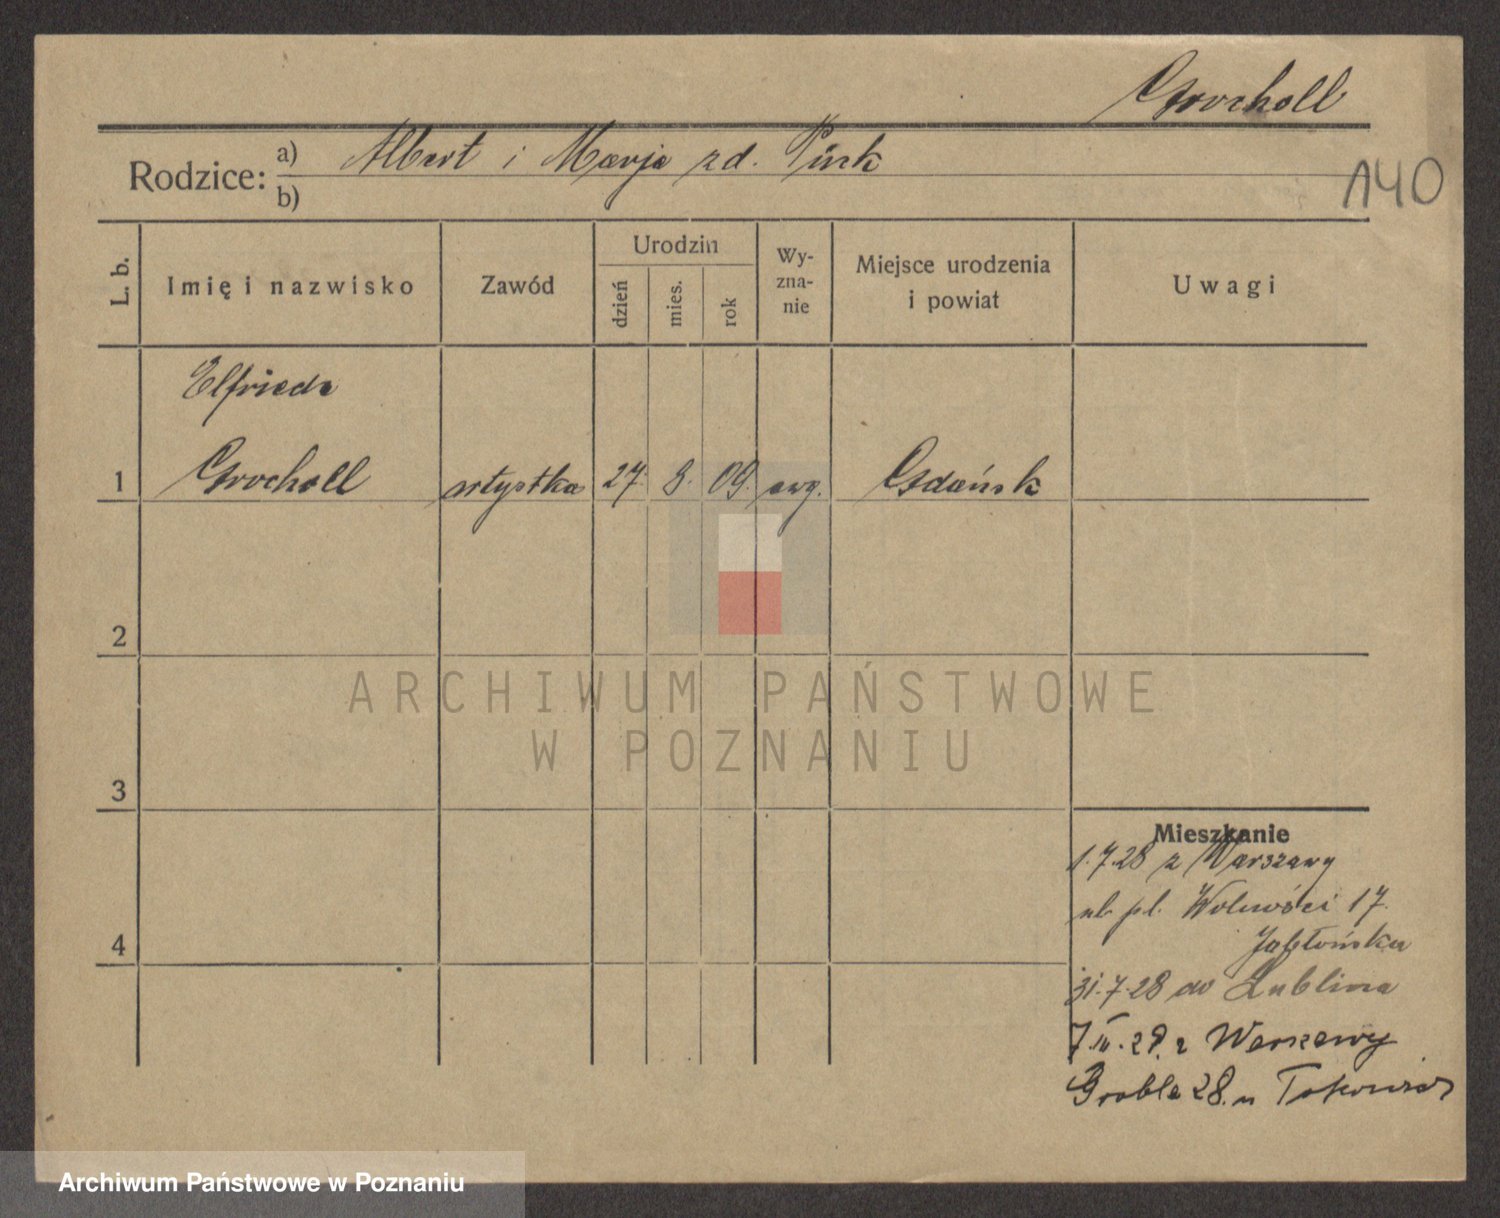 Grocholl
Rodzice: a) Albert i Marja zd. Pink
b)
140
L. b.
Imię i nazwisko
Zawód
Urodzin
dzień
mies.
rok
Wy-
zna-
nie
Miejsce urodzenia
i powiat
Uwagi
Elfriede
1 Grocholl artystka 27. 8. 09. ewg. Gdańsk
2
3
4
Mieszkanie
1.7.28 z Warszawy
pl. Wolności 17.
Jabłońska
31.7.28 do Lublina
29. z Warszawy
Groble 28. u
ARCHIWUM PAŃSTWOWE
W POZNANIU
Archiwum Państwowe w Poznaniu